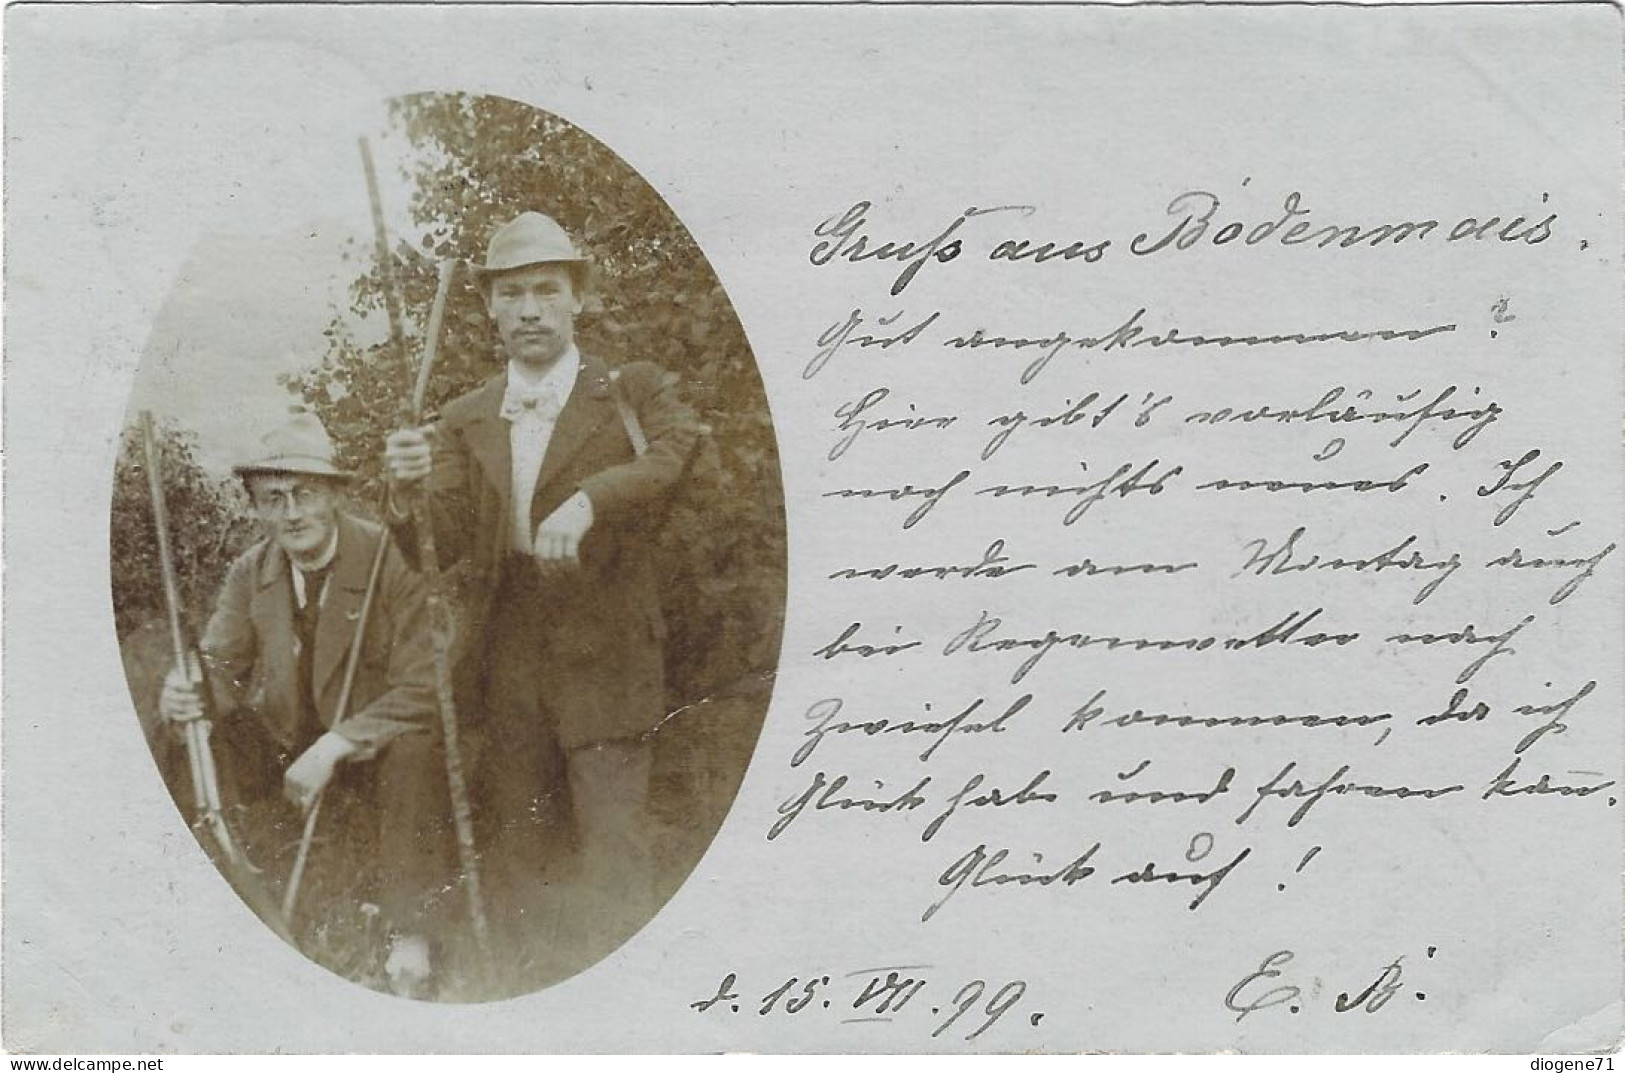 Gruß aus Bodenmais.
Gut angekommen?
Hier gibt's vorläufig
noch nichts neues. Ich
werde am Montag auch
bei Regenwetter nach
Zwiesel kommen, da ich
Glück habe und fahren kann.
Glück auf!
d. 15. VII. 99.
E. B.
delcampe.net
diogene71